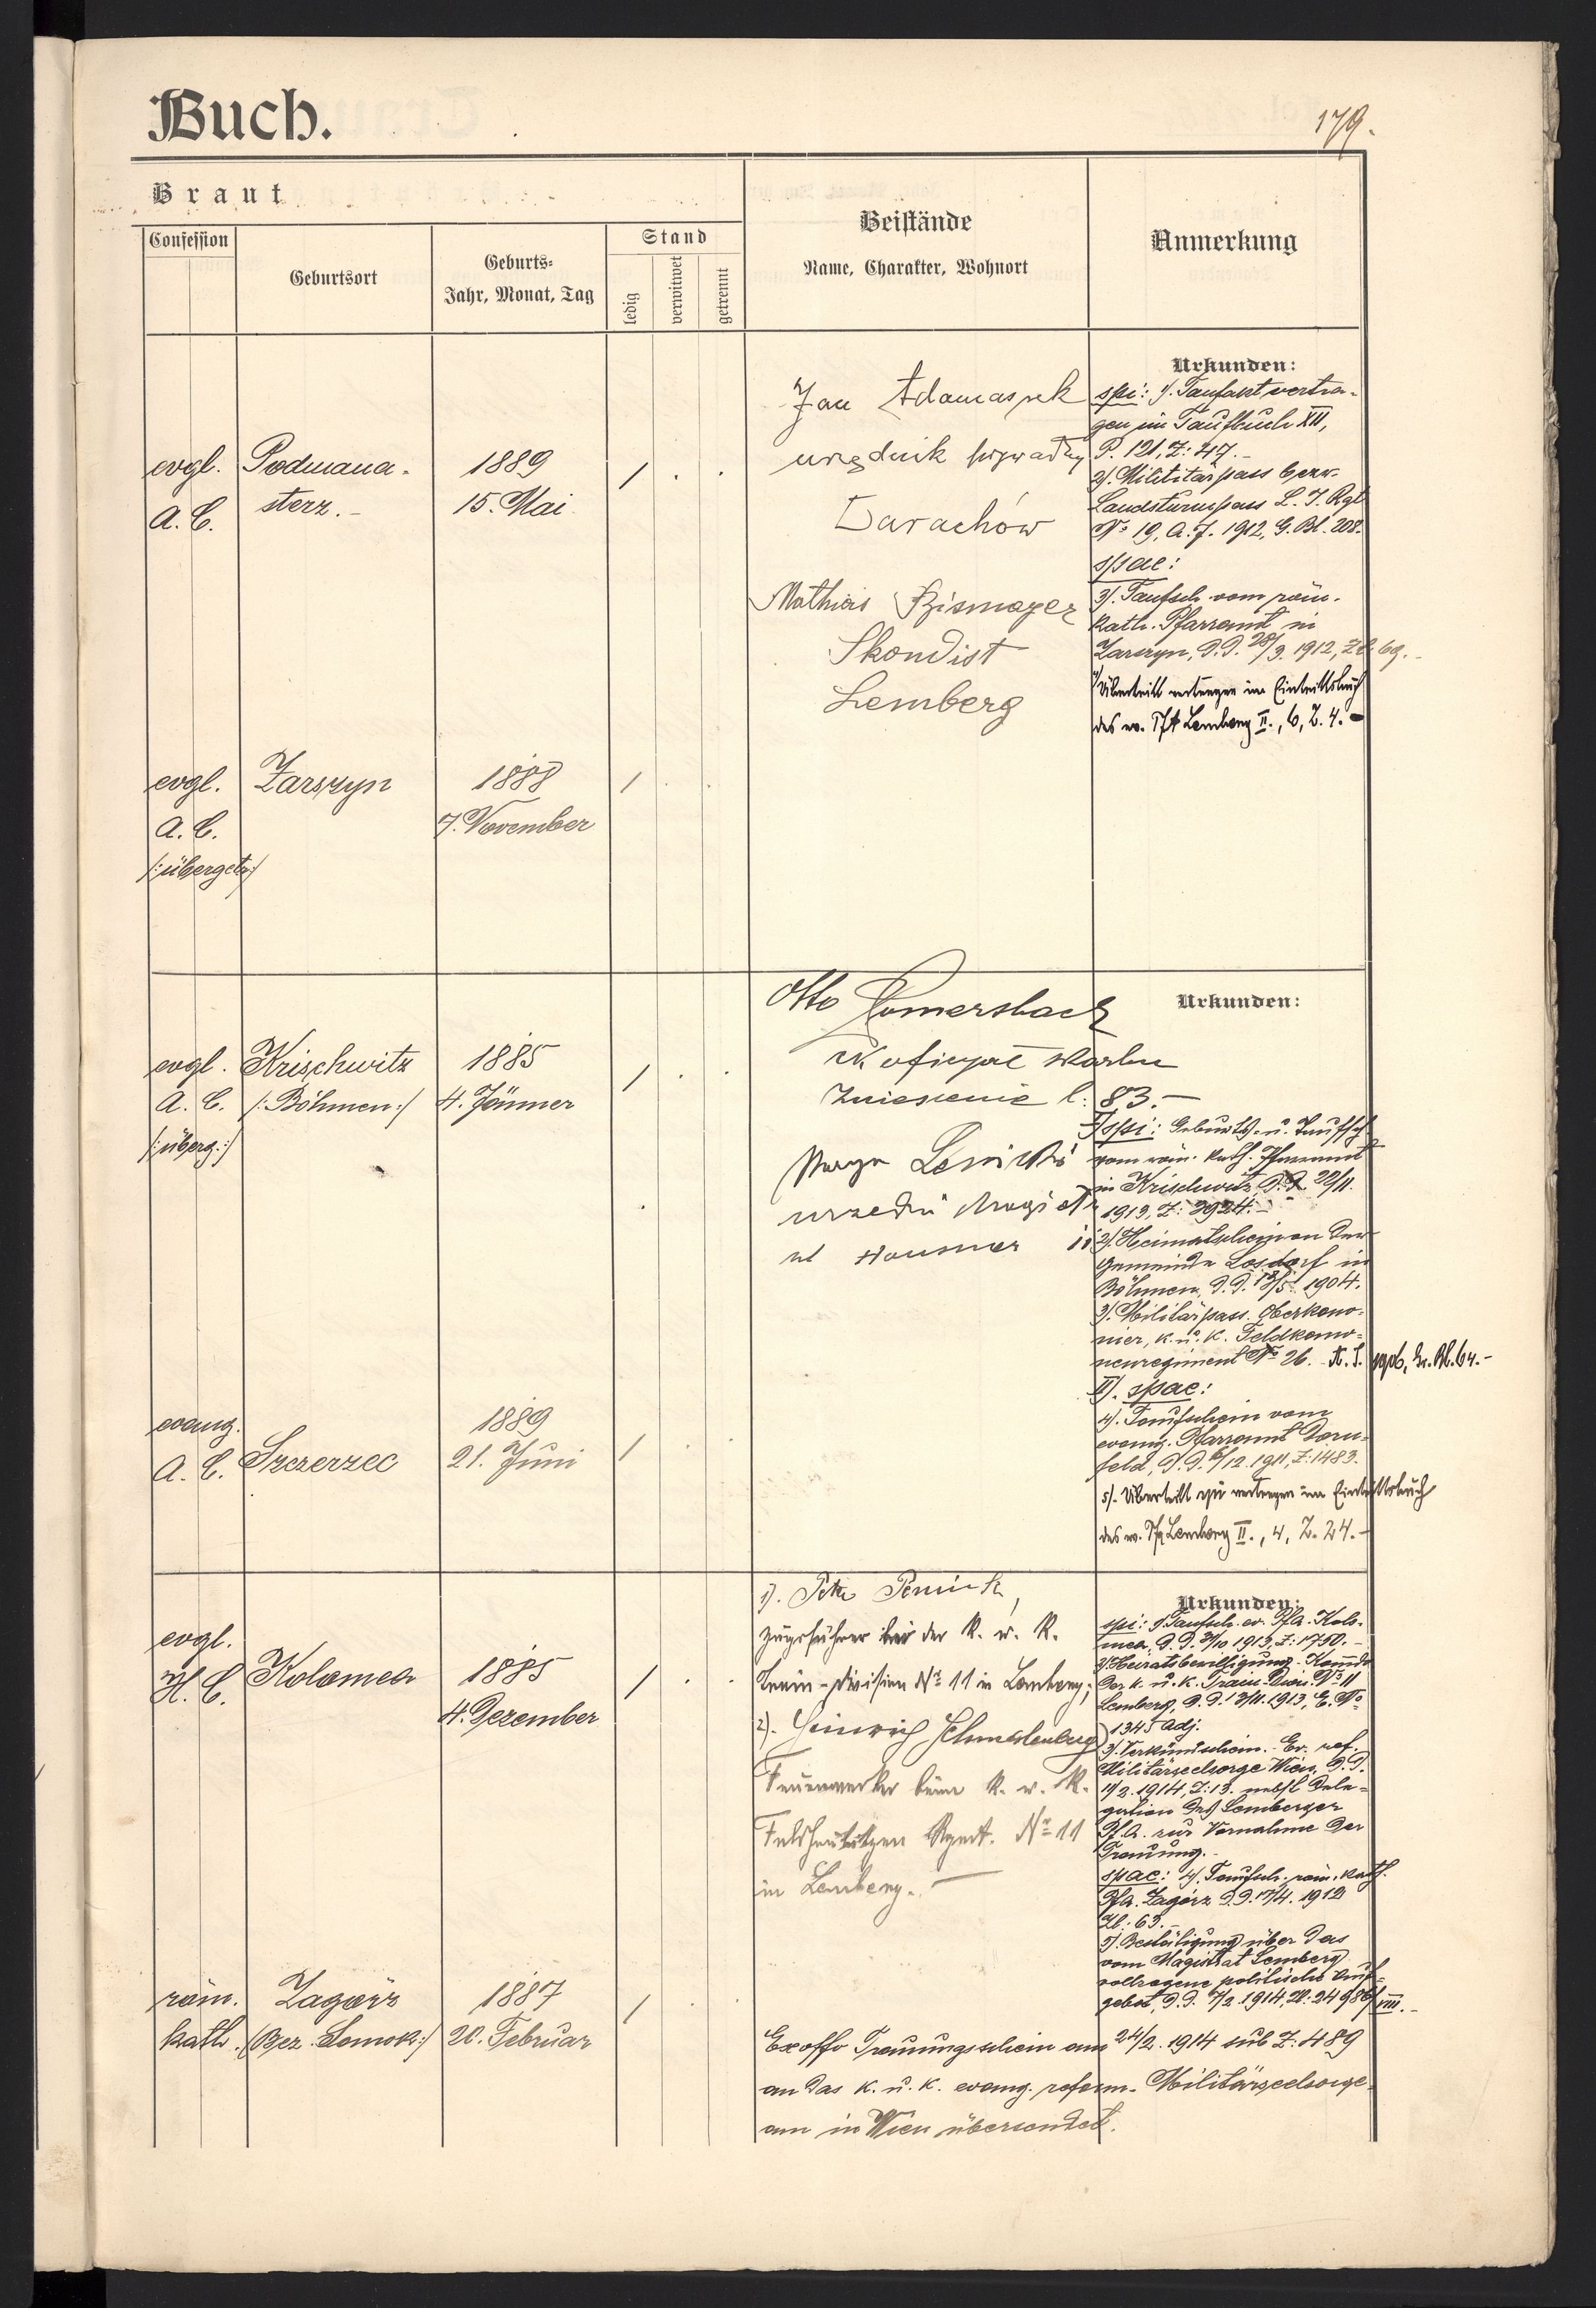 Buch.
179.
Braut
Confession
Geburtsort
Geburts-
Jahr, Monat, Tag
Stand
ledig
verwitwet
getrennt
Beistände
Name, Charakter, Wohnort
Anmerkung
evgl. Podmana-
A. C. sterz.-
1889
15. Mai
Jan Adamaszek
urzędnik prywatny
Darachów
Mathias
Skondist
Lemberg
Urkunden:
spi: 1/. Taufakt vertra-
gen im Taufbuch XII,
P. 121, Z: 47.-
2/. Militärpass bezw.
Landsturmpass L. I. Rgt
No 19, A. J. 1912, G. Bl. 208.
spae:
3/. Taufsch. vom röm.
kath. Pfarramt in
Zarszyn, d.d. 28/3. 1912, Zl. 69.-
4/ Übertritt vertragen im Eintrittsbuch
des ev. Lemberg II., 6, Z. 4.-
evgl. Zarszyn
A. C.
/:übergetr:/
1888
7. November
evgl. Krischwitz
A. C. /:Böhmen:/
/:überg:/
1885
4. Jänner
Otto Pomersbach
Zniesienie l: 83.-
Urkunden:
I/ spi: Geburts- u. Taufsch.
vom röm. kath. Pfarramt
in Krischwitz, d.d. 22/11.
1913, Z: 3924.-
2/. Heimatschein von der
Gemeinde Losdorf in
Böhmen, d.d. 1904.
3/. Militärpass. Oberkano-
nier, k. u. k. Feldkano-
nenregiment No 26. A. J. 1906, Gr. Bl. 64.-
II/. spae:
4/. Taufschein vom
evang. Pfarramt Dorn-
feld, d.d. 6/12. 1911, Z: 1483.
5/. Übertritt vertragen im Eintrittsbuch
des ev. Lemberg II., 4, Z. 24.-
evang.
A. C. Szczerzec
1889
21. Juni
evgl.
H. C. Kolomea
1885
4. Dezember
1). Petr
Zugsführer bei der k. u. k.
Train-Division No 11 in Lemberg;
2). Heinrich Schmalenberg
Feuerwerker beim k. u. k.
Feldhaubitzen Rgmt. No 11
in Lemberg.-
Urkunden:
spi: 1/ Taufsch. ev. Pfa. Kolo-
mea, d.d. 3/10 1913, Z: 1750.-
2/. Heiratsbewilligung. Komdo
der k. u. k. Train-Dion. No 11
Lemberg, d.d. 13/11. 1913, E. No
1345 Adj.
3/. Verkündschein. Ev. ref.
Militärseelsorge Wien, d.d.
1/2. 1914, Z: 13. nebst Dele-
gation des Lemberger
Pf.A. zur Vornahme der
Trauung.-
spae: 4/. Taufsch. röm. kath.
Pfa. Zagórz d.d. 17/4. 1912
Zl: 63.-
5/. Bestätigung über das
vom Magistrat Lemberg
vollzogene politische Auf-
gebot, d.d. 7/2. 1914, Zl: 24986/VIII.-
röm. Zagórz
kath. (Bez. Sanok:)
1887
20. Februar
Exoffo Trauungsschein am 24/2. 1914 sub Z: 489
an das k. u. k. evang. reform. Militärseelsorge-
am in Wien übersendet.